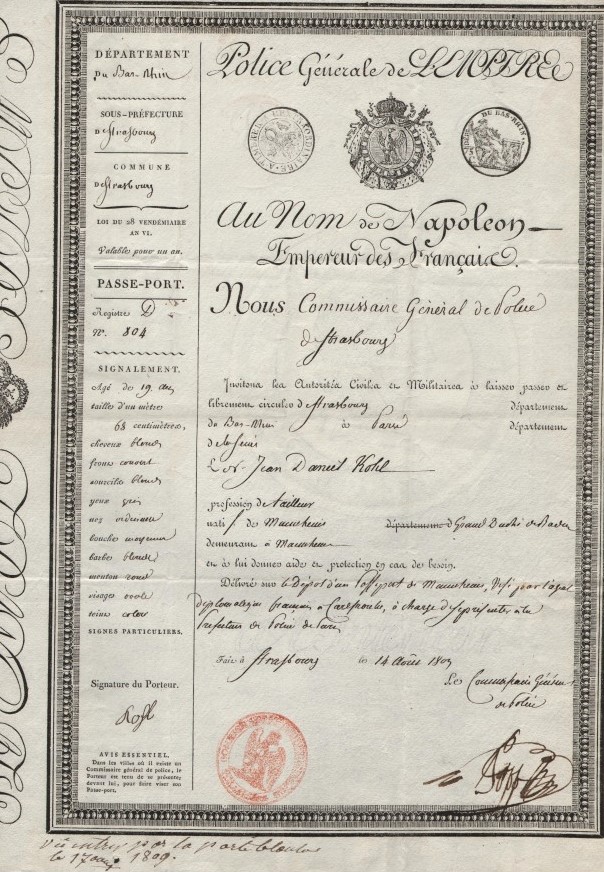 DÉPARTEMENT
Du Bas-Rhin
SOUS-PRÉFECTURE
de Strasbourg
COMMUNE
de Strasbourg
LOI DU 28 VENDÉMIAIRE
AN VI.
Valable pour un an.
PASSE-PORT.
Registre D
N°. 804
SIGNALEMENT.
Agé de 19 ans
taille d'un mètre
68 centimètres,
cheveux blonds
front couvert
sourcils blonds
yeux gris
nez ordinaire
bouche moyenne
barbe blonde
menton rond
visage ovale
teint coloré
SIGNES PARTICULIERS.
Signature du Porteur.
Kohl
AVIS ESSENTIEL.
Dans les villes où il existe un
Commissaire général de police, le
Porteur est tenu de se présenter
devant lui, pour faire viser son
Passe-port.
Police Générale de L'EMPIRE
DU BAS-RHIN
Au Nom de Napoleon
Empereur des Français.
Nous Commissaire Général de Police
de Strasbourg
Invitons les Autorités Civiles et Militaires à laisser passer et
librement circuler de Strasbourg département
du Bas-Rhin à Paris département
de la Seine
L Sr Jean Daniel Kohl
profession de tailleur
natif de Mannheim département Grand Duché de Baden
demeurant à Mannheim
et à lui donner aide et protection en cas de besoin.
Délivré sur le Dépôt d'un Passeport de Mannheim, Visé par l'agent
diplomatique français à Carlsrouhe, à charge de se présenter à la
Préfecture de Police de Paris
Fait à Strasbourg le 14 Août 1809
Le Commissaire Général
de police
Popp
Vu entrer par la porte blanche
le 17 1809.